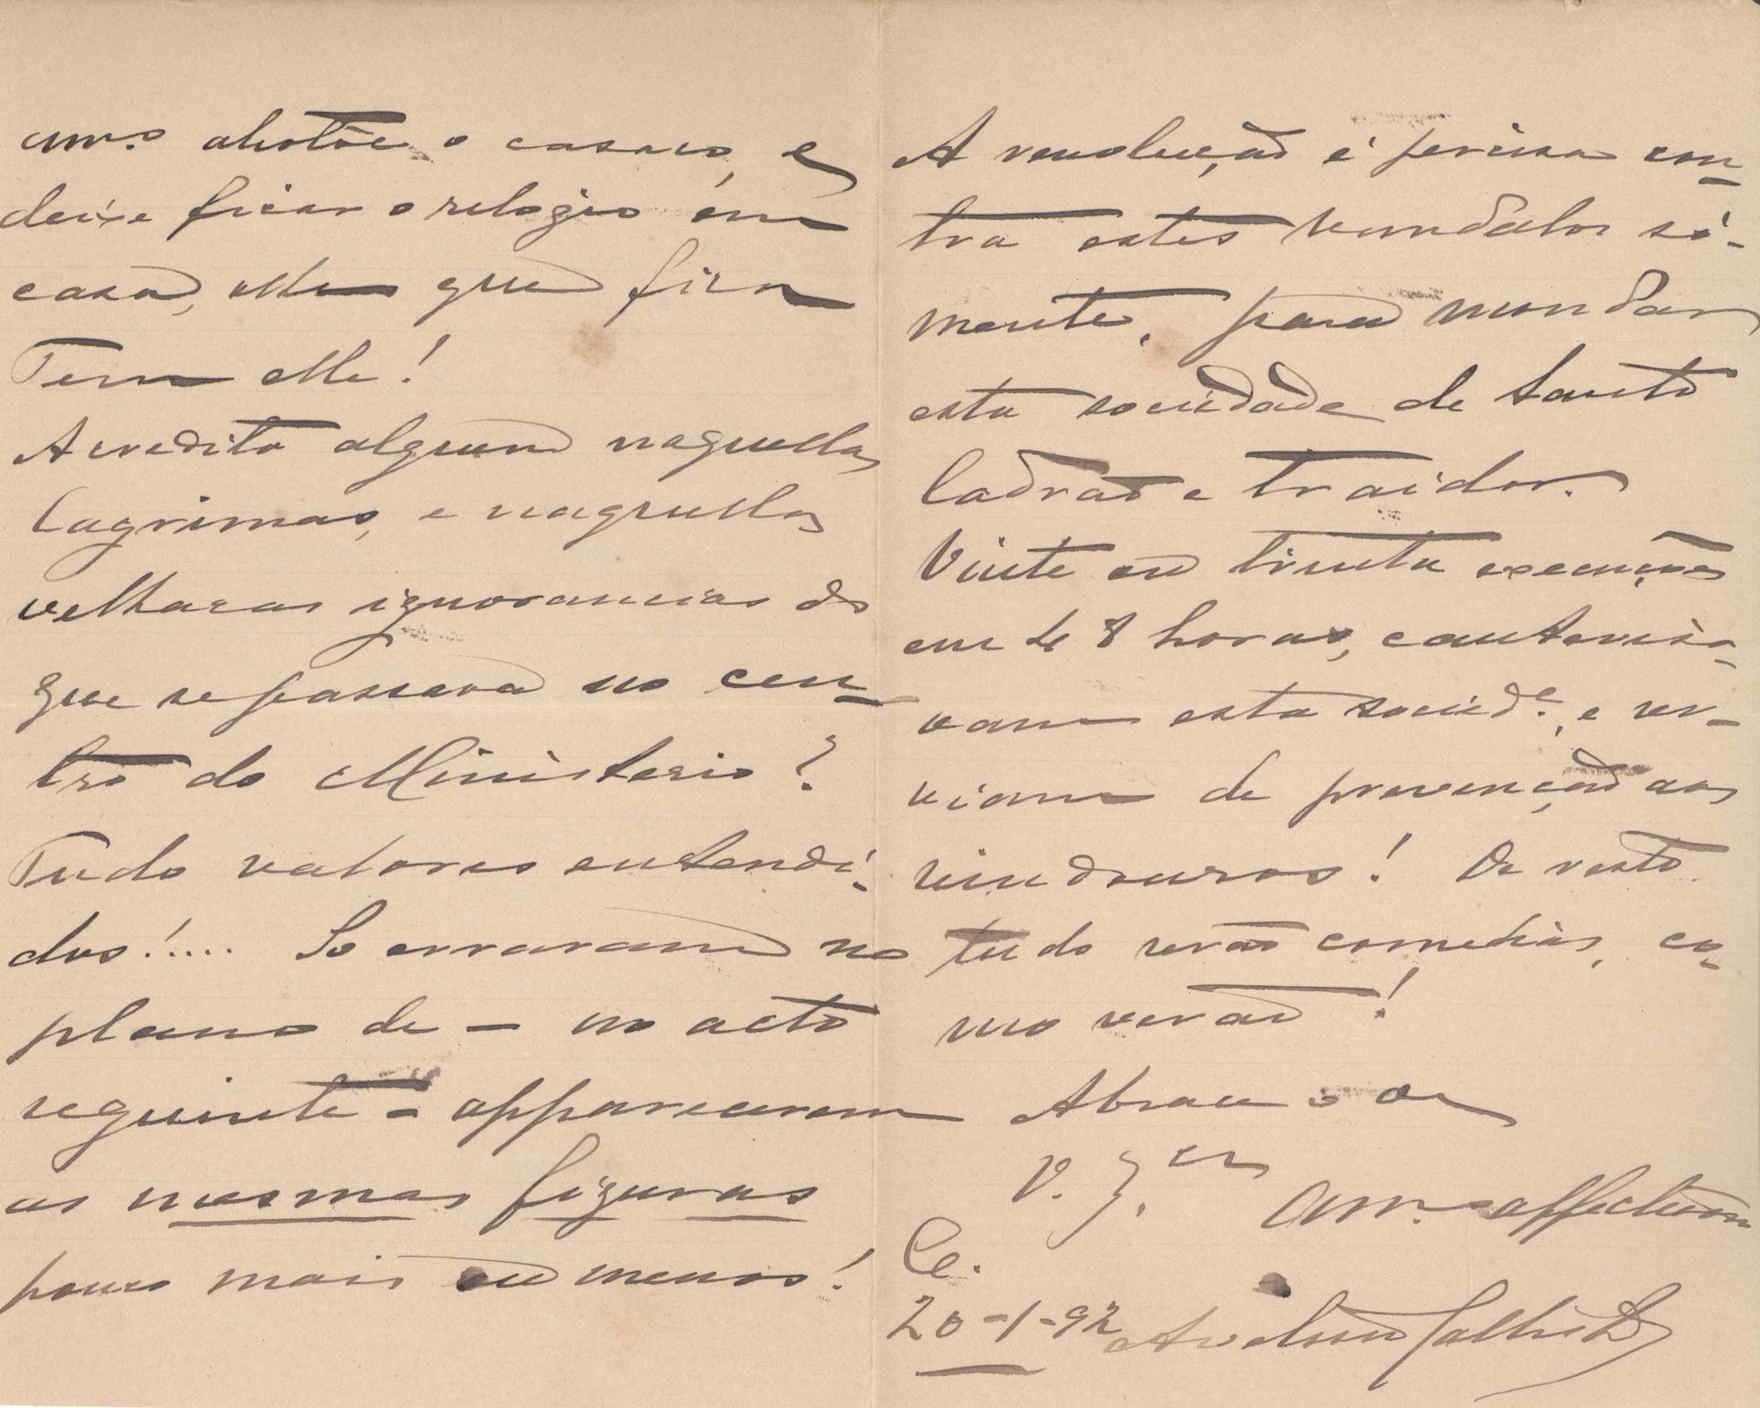 am.o abotôe o casaco, e
deixe ficar o relogio em
casa, olhe que fica
sem elle!
Acredita alguem naquellas
lagrimas, e naquellas
velhacas ignorancias do
que se passava no cen-
tro do Ministerio?
Tudo valores entendi-
dos!.... So erraram no
plano de - no acto
seguinte - apparecerem
as mesmas figuras
pouco mais ou menos!
A revolução é percisa con-
tra estes vandalos só-
mente, para mondar
esta sociedade de tanto
ladrão e traidor.
Vinte ou trinta execuções
em 48 horas, cauterisa-
vam esta socied.e, e ser-
viam de prevenção aos
vindouros! De resto
tudo serão comedias, co-
mo verão!
Abraça o de
V. Ex.cia
am.o affectuoso
20-1-92